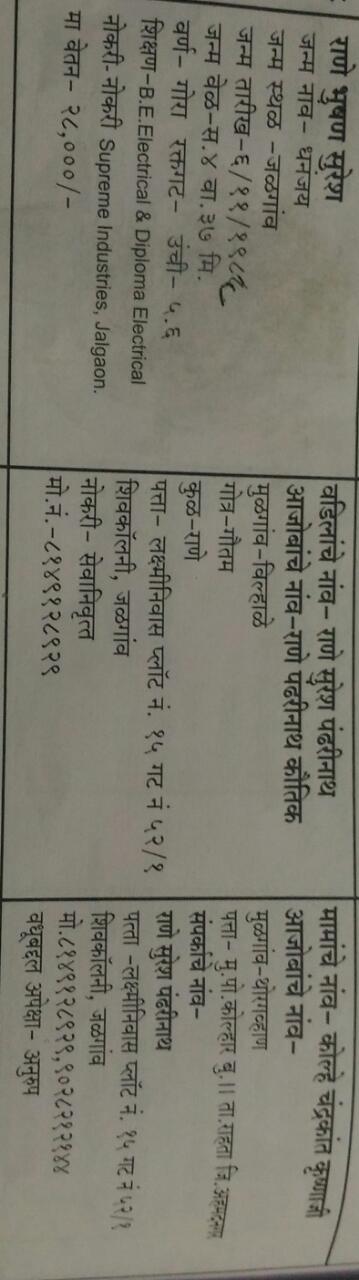 राणे भुषण सुरेश
जन्म नाव- धनंजय
जन्म स्थळ -जळगांव
जन्म तारीख-६/११/१९८९
जन्म वेळ-स.४ वा.३७ मि.
वर्ण- गोरा रक्तगट- उंची- ५.६
शिक्षण-B.E.Electrical & Diploma Electrical
नोकरी-नोकरी Supreme Industries, Jalgaon.
मा वेतन- २८,०००/-
वडिलांचे नांव- राणे सुरेश पंढरीनाथ
आजोबांचे नांव-राणे पढरीनाथ कौतिक
मुळगांव-विल्हाळे
गोत्र-गौतम
कुळ-राणे
पत्ता- लक्ष्मीनिवास प्लॉट नं. १५ गट नं ५२/१
शिवकॉलनी, जळगांव
नोकरी- सेवानिवृत्त
मो.नं.-८१४९१२८१२१
मामांचे नांव- कोल्हे चंद्रकांत कृष्णाजी
आजोबांचे नांव-
मुळगांव-थोरगव्हाण
पत्ता- मु.पो.कोल्हार बु.।। ता.राहता जि.अहमदनगर
संपर्काचे नांव-
राणे सुरेश पंढरीनाथ
पत्ता -लक्ष्मीनिवास प्लॉट नं. १५ गट नं ५२/१
शिवकॉलनी, जळगांव
मो.८१४९१२८१२१,९०२८२१२१४४
वधूबद्दल अपेक्षा- अनुरुप